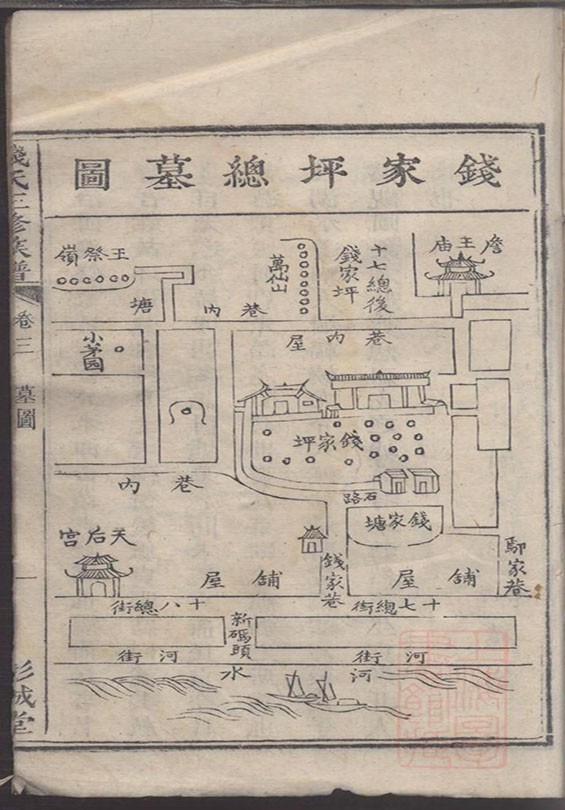 錢家坪總墓圖
詹王庙
十七總後
錢家坪
萬仙山
王祭嶺
塘
巷內
巷內屋
小茅园
錢家坪
巷內
石路
錢家塘
天后宫
鄢家巷
錢家巷
舖屋
舖屋
十七總街
十八總街
新碼頭
河街
河街
河水
錢氏三修族譜
卷三
墓圖
一
彭城堂